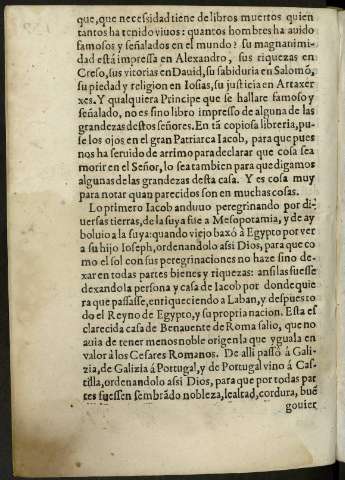 que, que necessidad tiene de libros muertos quien
tantos ha tenido viuos: quantos hombres ha auido
famosos y señalados en el mundo? su magnanimi-
dad está impressa en Alexandro, sus riquezas en
Creso, sus vitorias en Dauid, su sabiduria en Salomõ,
su piedad y religion en Iosias, su justicia en Artaxer
xes. Y qualquiera Principe que se hallare famoso y
señalado, no es sino libro impresso de alguna de las
grandezas destos señores. En tã copiosa libreria, pu-
se los ojos en el gran Patriarca Iacob, para que pues
nos ha seruido de arrimo para declarar que cosa sea
morir en el Señor, lo sea tambien para que digamos
algunas de las grandezas desta casa. Y es cosa muy
para notar quan parecidos son en muchas cosas.
Lo primero Iacob anduuo peregrinando por di-
uersas tierras, de la suya fue a Mesopotamia, y de ay
boluio a la suya: quando viejo baxó a Egypto por ver
a su hijo Ioseph, ordenandolo assi Dios, para que co
mo el sol con sus peregrinaciones no haze sino de-
xar en todas partes bienes y riquezas: ansi las fuesse
dexando la persona y casa de Iacob por donde quie
ra que passasse, enriqueciendo a Laban, y despues to
do el Reyno de Egypto, y su propria nacion. Esta es
clarecida casa de Benauente de Roma salio, que no
auia de tener menos noble origen la que yguala en
valor à los Cesares Romanos. De alli passó á Gali-
zia, de Galizia á Portugal, y de Portugal vino á Cas-
tilla, ordenandolo assi Dios, para que por todas par
tes fuessen sembrãdo nobleza, lealtad, cordura, buẽ
gouier